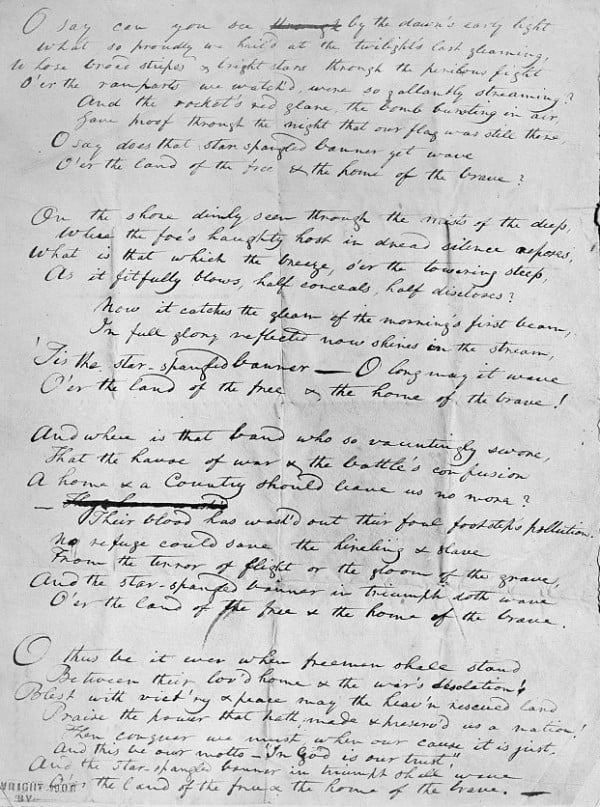 O say can you see through by the dawn's early light
What so proudly we hail'd at the twilight's last gleaming,
Whose broad stripes & bright stars through the perilous fight
O'er the ramparts we watch'd, were so gallantly streaming?
And the rocket's red glare, the bomb bursting in air,
Gave proof through the night that our flag was still there,
O say does that star spangled banner yet wave
O'er the land of the free & the home of the brave?
On the shore dimly seen through the mists of the deep,
Where the foe's haughty host in dread silence reposes,
What is that which the breeze, o'er the towering steep,
As it fitfully blows, half conceals, half discloses?
Now it catches the gleam of the morning's first beam,
In full glory reflected now shines in the stream,
'Tis the star-spangled banner — O long may it wave
O'er the land of the free & the home of the brave!
And where is that band who so vauntingly swore,
That the havoc of war & the battle's confusion
A home & a Country should leave us no more?
—
Their blood has wash'd out their foul footsteps pollution.
No refuge could save the hireling & slave
From the terror of flight or the gloom of the grave,
And the star-spangled banner in triumph doth wave
O'er the land of the free & the home of the brave.
O thus be it ever when freemen shall stand
Between their lov'd home & the war's desolation!
Blest with vict'ry & peace may the heav'n rescued land
Praise the power that hath made & preserv'd us a nation!
Then conquer we must, when our cause it is just,
And this be our motto — "In God is our trust,"
And the star-spangled banner in triumph shall wave
O'er the land of the free & the home of the brave. —
BY